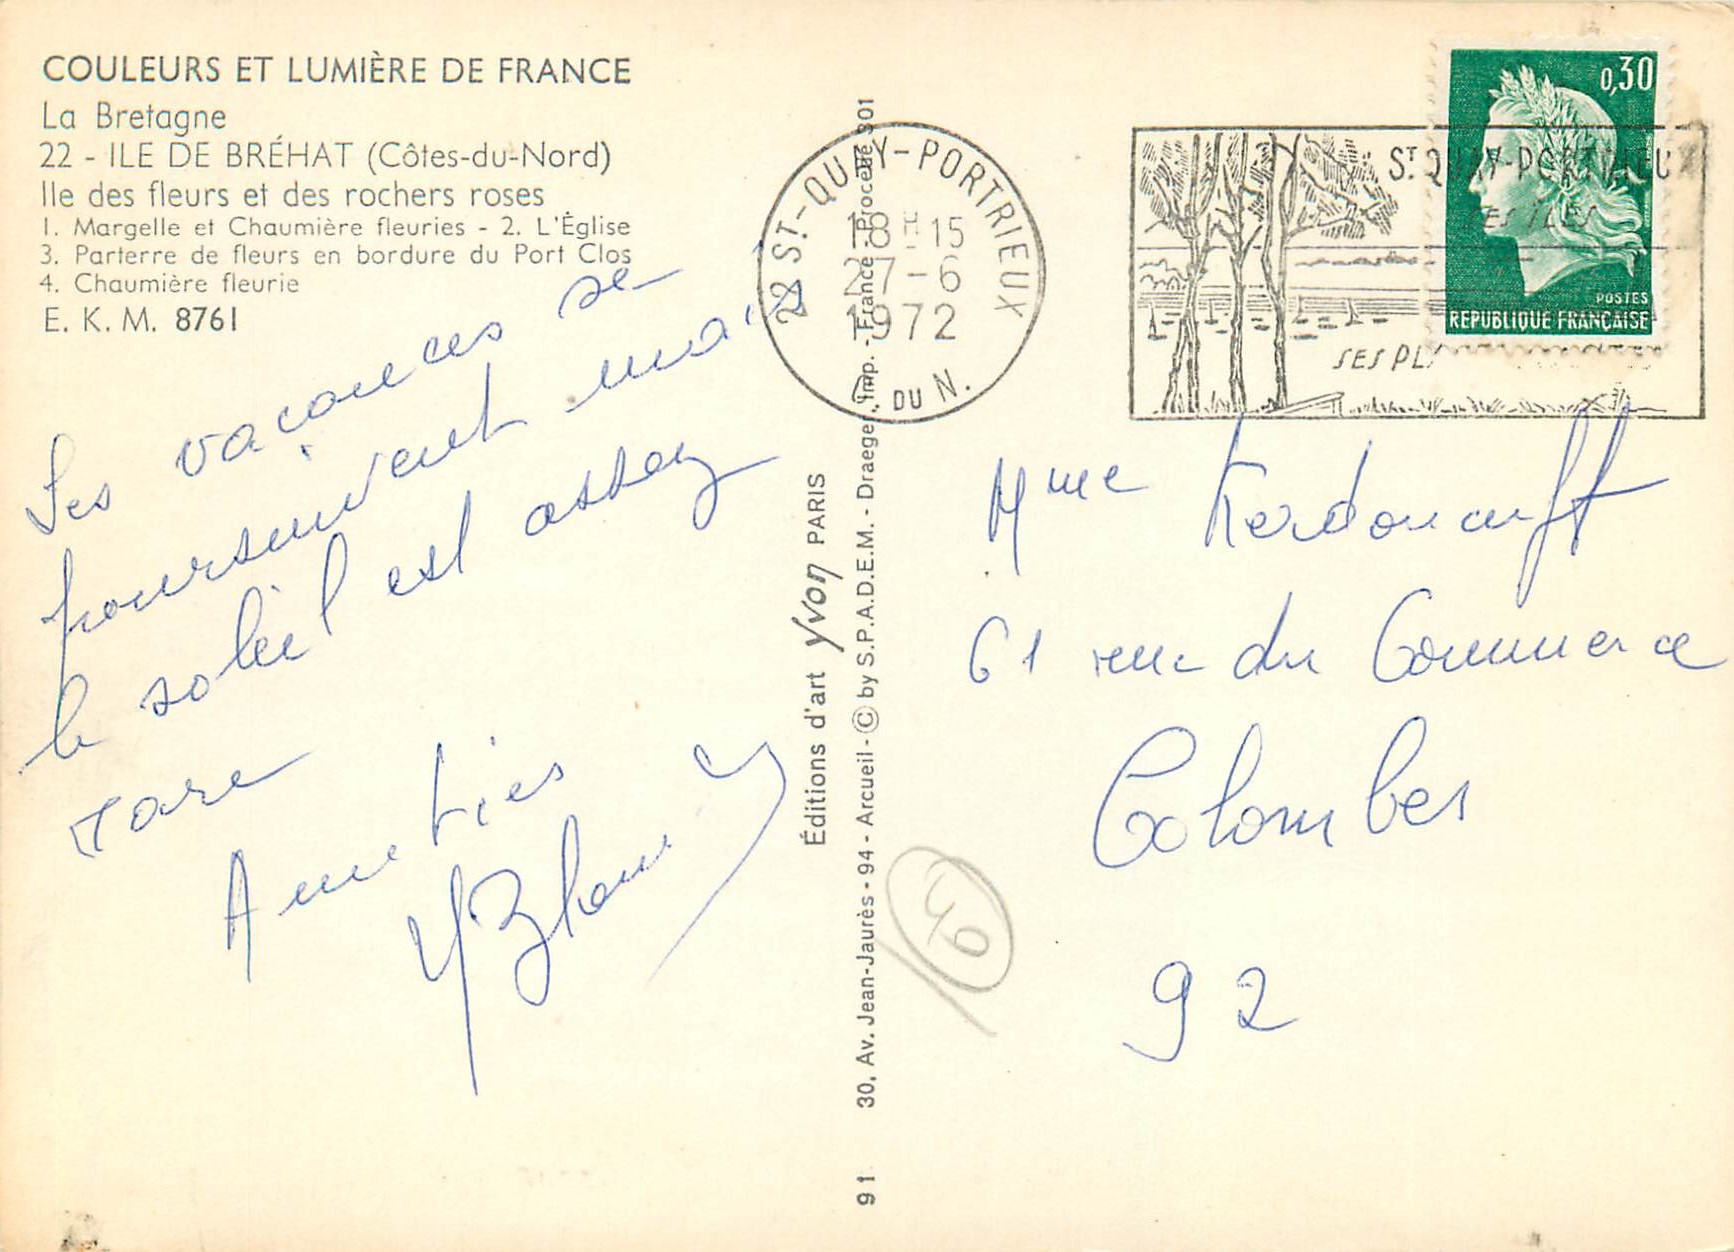 COULEURS ET LUMIÈRE DE FRANCE
La Bretagne
22 - ILE DE BRÉHAT (Côtes-du-Nord)
Ile des fleurs et des rochers roses
1. Margelle et Chaumière fleuries - 2. L'Église
3. Parterre de fleurs en bordure du Port Clos
4. Chaumière fleurie
E. K. M. 8761
Les vacances se
poursuivent mais
le soleil est assez
rare
Amitiés
Éditions d'art yvon PARIS
91 30, Av. Jean-Jaurès - 94 - Arcueil - © by S.P.A.D.E.M. - Draeger, Imp. - France - Procédé 301
22 ST-QUAY-PORTRIEUX
18 H 15
27-6
1972
C. DU N.
ST QUAY-PORTRIEUX
SES ILES
SES PL
0,30
POSTES
REPUBLIQUE FRANÇAISE
Mme
61 rue du Commerce
Colombes
92